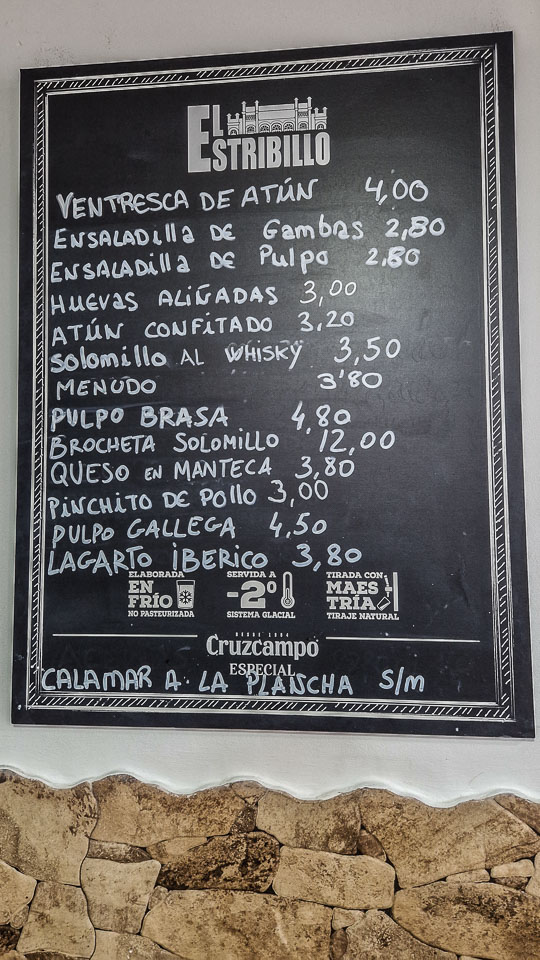 EL
ESTRIBILLO
VENTRESCA DE ATÚN 4,00
ENSALADilla DE Gambas 2,80
ENSALADilla DE Pulpo 2,80
HUEVAS ALIÑADAS 3,00
ATÚN CONFITADO 3,20
Solomillo AL WHISKY 3,50
MENUDO 3'80
PULPO BRASA 4,80
BROCHETA SOLOMILLO 12,00
QUESO EN MANTECA 3,80
PINCHITO DE POLLO 3,00
PULPO GALLEGA 4,50
LAGARTO IBERICO 3,80
ELABORADA EN FRÍO NO PASTEURIZADA
SERVIDA A -2º SISTEMA GLACIAL
TIRADA CON MAESTRÍA TIRAJE NATURAL
DESDE 1904
Cruzcampo
ESPECIAL
CALAMAR A LA PLANCHA S/M